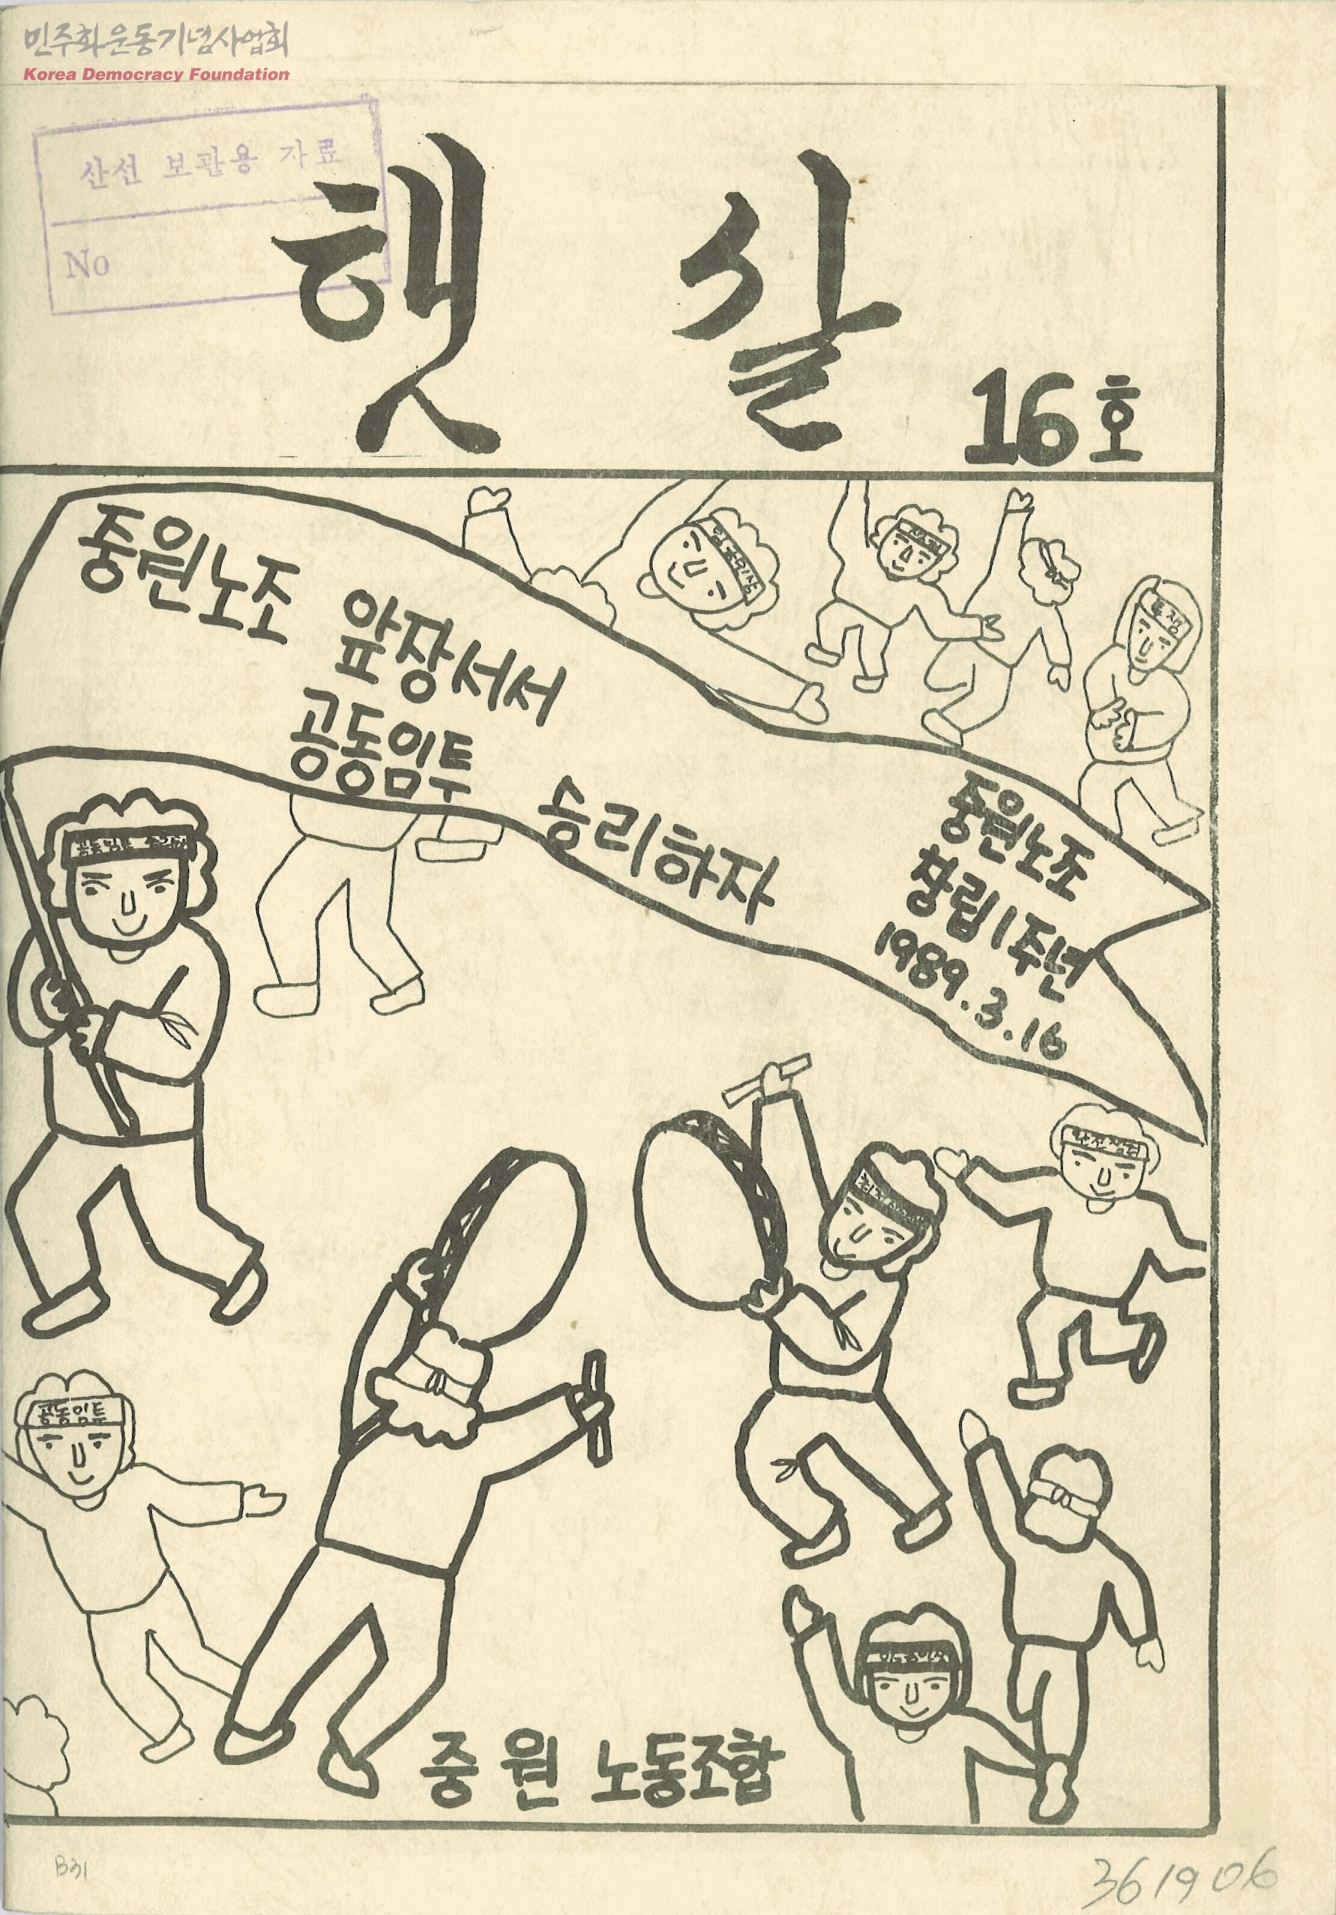 민주화운동기념사업회
Korea Democracy Foundation
산선 보관용 자료
No
햇살
16호
중원노조 앞장서서
공동임투 승리하자
중원노조
창립1주년
1989.3.16
투쟁
공동임투
완전쟁취
중원 노동조합
B31
361906